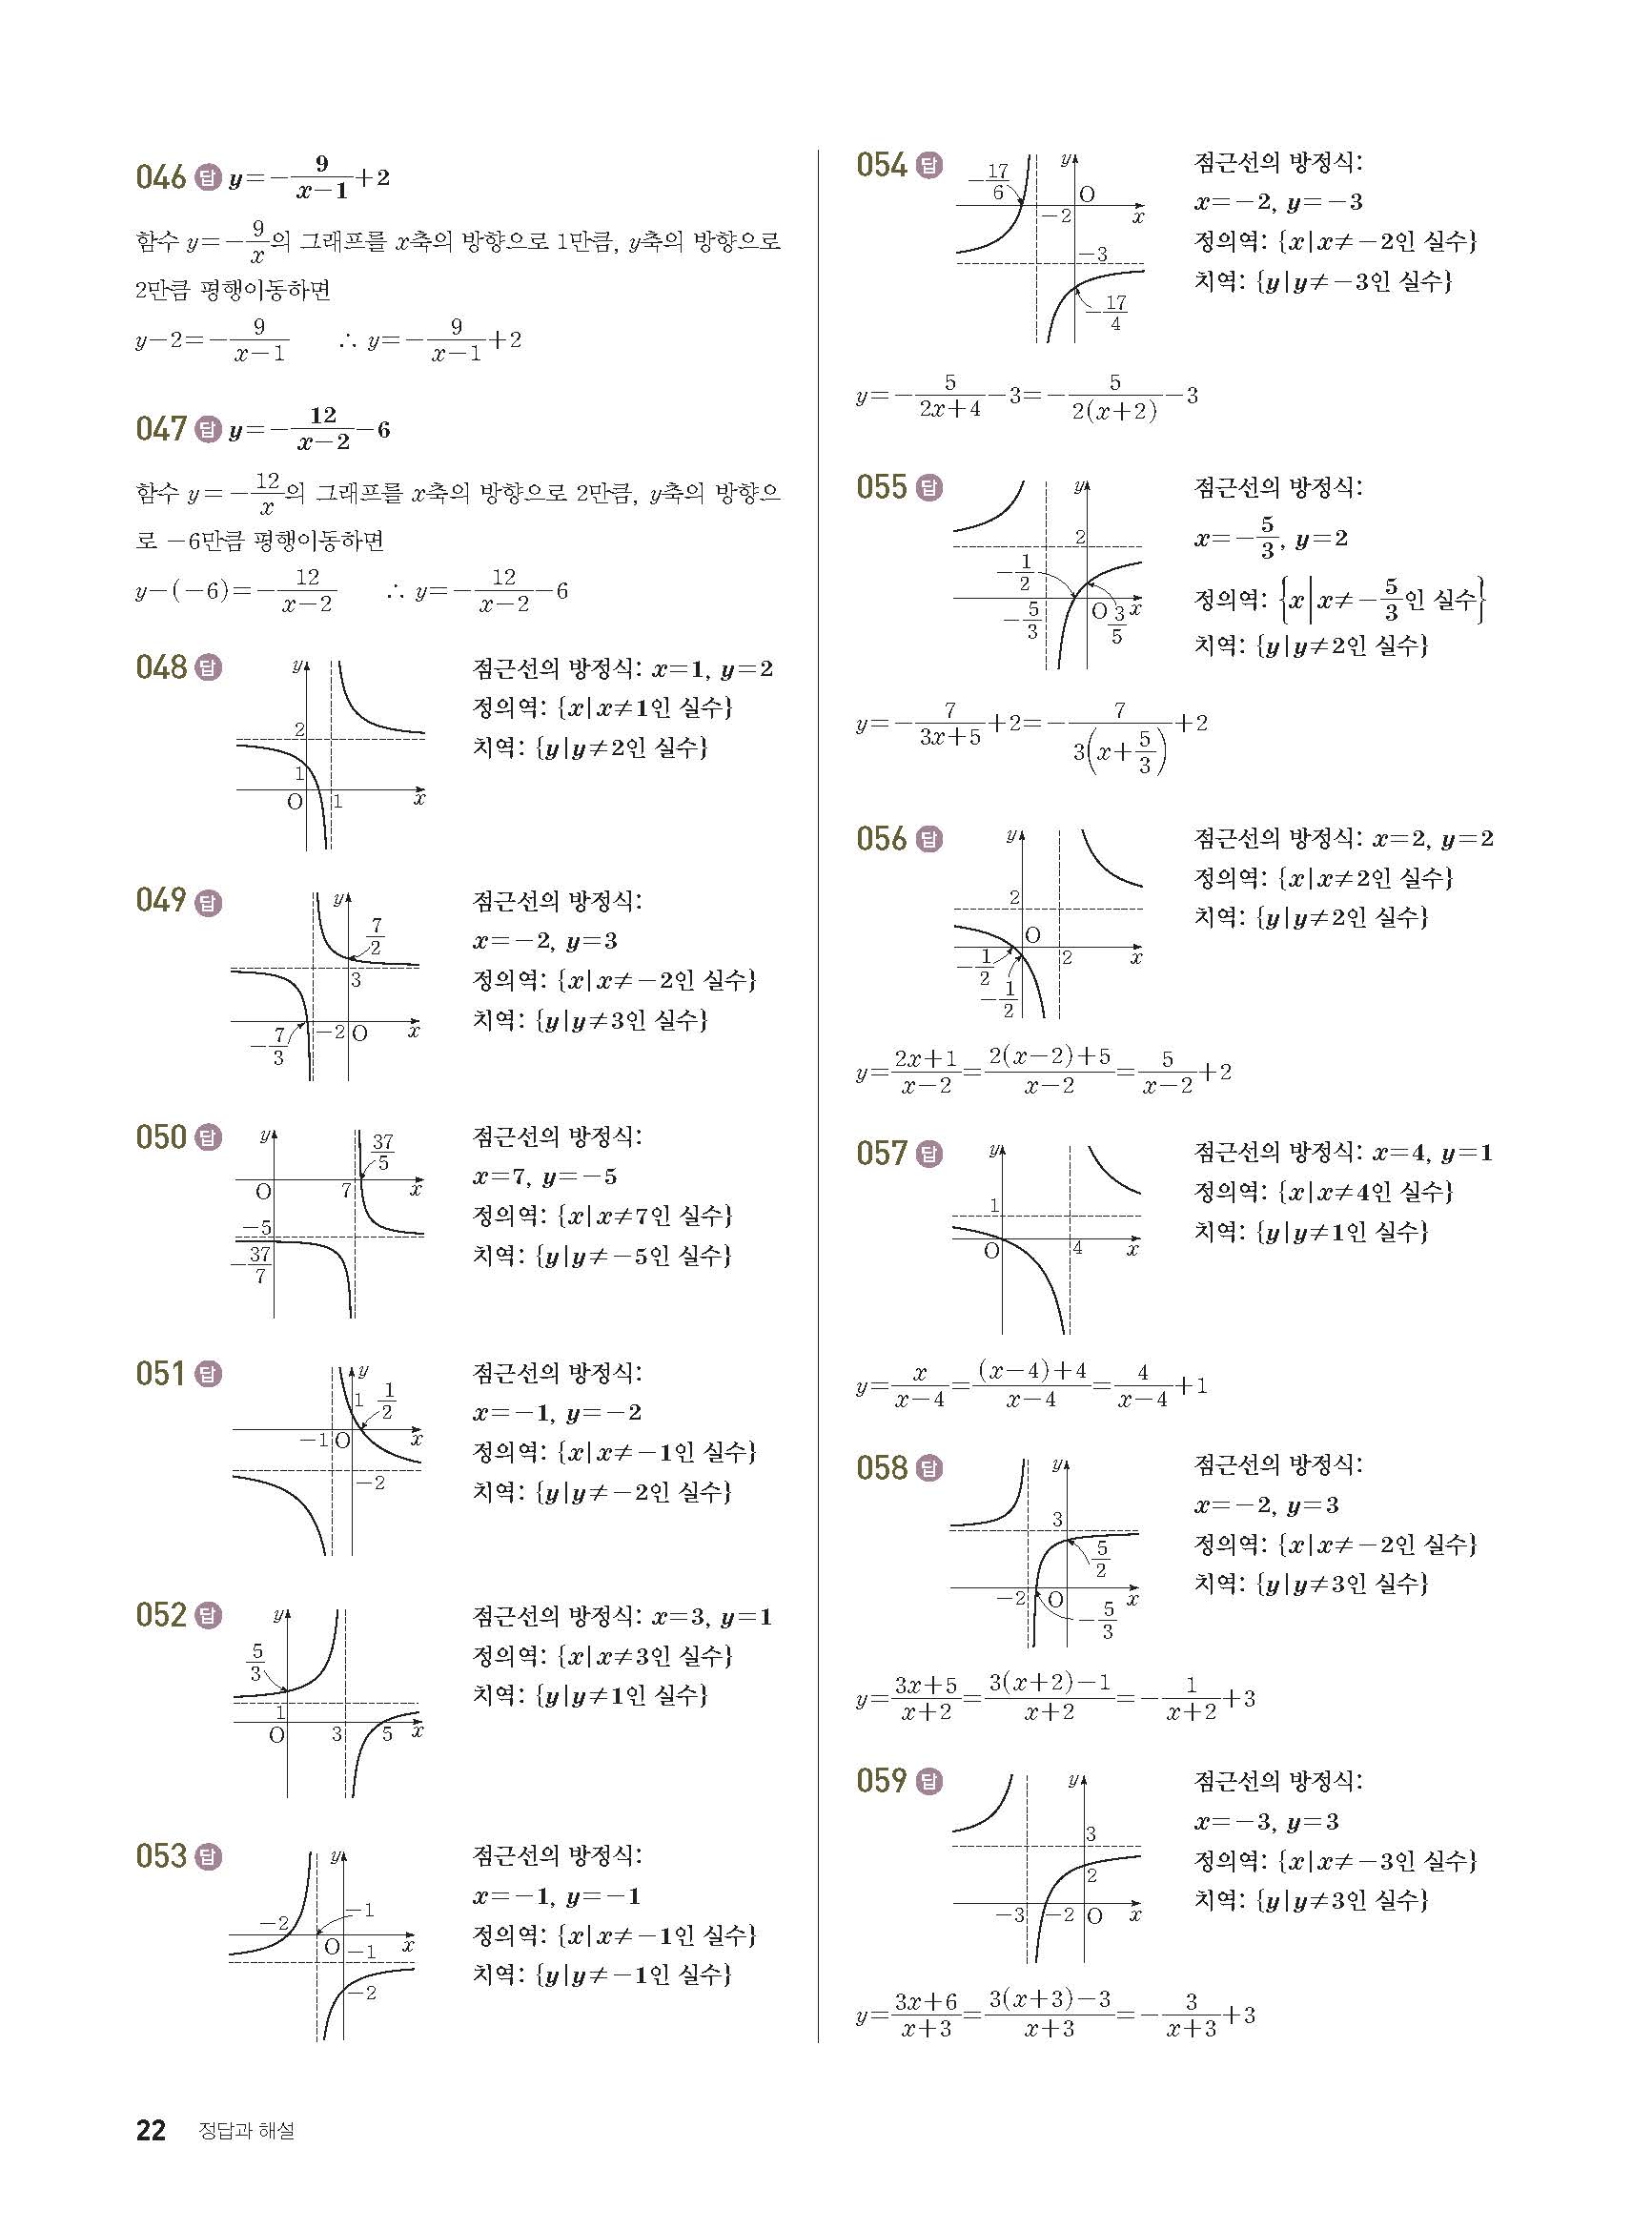 046 답 y=-9/(x-1)+2
함수 y=-9/x의 그래프를 x축의 방향으로 1만큼, y축의 방향으로
2만큼 평행이동하면
y-2=-9/(x-1) ∴ y=-9/(x-1)+2
047 답 y=-12/(x-2)-6
함수 y=-12/x의 그래프를 x축의 방향으로 2만큼, y축의 방향으
로 -6만큼 평행이동하면
y-(-6)=-12/(x-2) ∴ y=-12/(x-2)-6
048 답
y 2 1 O 1 x
점근선의 방정식: x=1, y=2
정의역: {x|x≠1인 실수}
치역: {y|y≠2인 실수}
049 답
y 7/2 3 -7/3 -2 O x
점근선의 방정식:
x=-2, y=3
정의역: {x|x≠-2인 실수}
치역: {y|y≠3인 실수}
050 답
y 37/5 O 7 x -5 -37/7
점근선의 방정식:
x=7, y=-5
정의역: {x|x≠7인 실수}
치역: {y|y≠-5인 실수}
051 답
y 1 1/2 -1 O x -2
점근선의 방정식:
x=-1, y=-2
정의역: {x|x≠-1인 실수}
치역: {y|y≠-2인 실수}
052 답
y 5/3 1 O 3 5 x
점근선의 방정식: x=3, y=1
정의역: {x|x≠3인 실수}
치역: {y|y≠1인 실수}
053 답
y -1 -2 O -1 x -2
점근선의 방정식:
x=-1, y=-1
정의역: {x|x≠-1인 실수}
치역: {y|y≠-1인 실수}
054 답
-17/6 y O -2 x -3 -17/4
점근선의 방정식:
x=-2, y=-3
정의역: {x|x≠-2인 실수}
치역: {y|y≠-3인 실수}
y=-5/(2x+4)-3=-5/(2(x+2))-3
055 답
y 2 -1/2 -5/3 O 3/5 x
점근선의 방정식:
x=-5/3, y=2
정의역: {x|x≠-5/3인 실수}
치역: {y|y≠2인 실수}
y=-7/(3x+5)+2=-7/(3(x+5/3))+2
056 답
y 2 O -1/2 2 x -1/2
점근선의 방정식: x=2, y=2
정의역: {x|x≠2인 실수}
치역: {y|y≠2인 실수}
y=(2x+1)/(x-2)=(2(x-2)+5)/(x-2)=5/(x-2)+2
057 답
y 1 O 4 x
점근선의 방정식: x=4, y=1
정의역: {x|x≠4인 실수}
치역: {y|y≠1인 실수}
y=x/(x-4)=((x-4)+4)/(x-4)=4/(x-4)+1
058 답
y 3 5/2 -2 O x -5/3
점근선의 방정식:
x=-2, y=3
정의역: {x|x≠-2인 실수}
치역: {y|y≠3인 실수}
y=(3x+5)/(x+2)=(3(x+2)-1)/(x+2)=-1/(x+2)+3
059 답
y 3 2 -3 -2 O x
점근선의 방정식:
x=-3, y=3
정의역: {x|x≠-3인 실수}
치역: {y|y≠3인 실수}
y=(3x+6)/(x+3)=(3(x+3)-3)/(x+3)=-3/(x+3)+3
22 정답과 해설